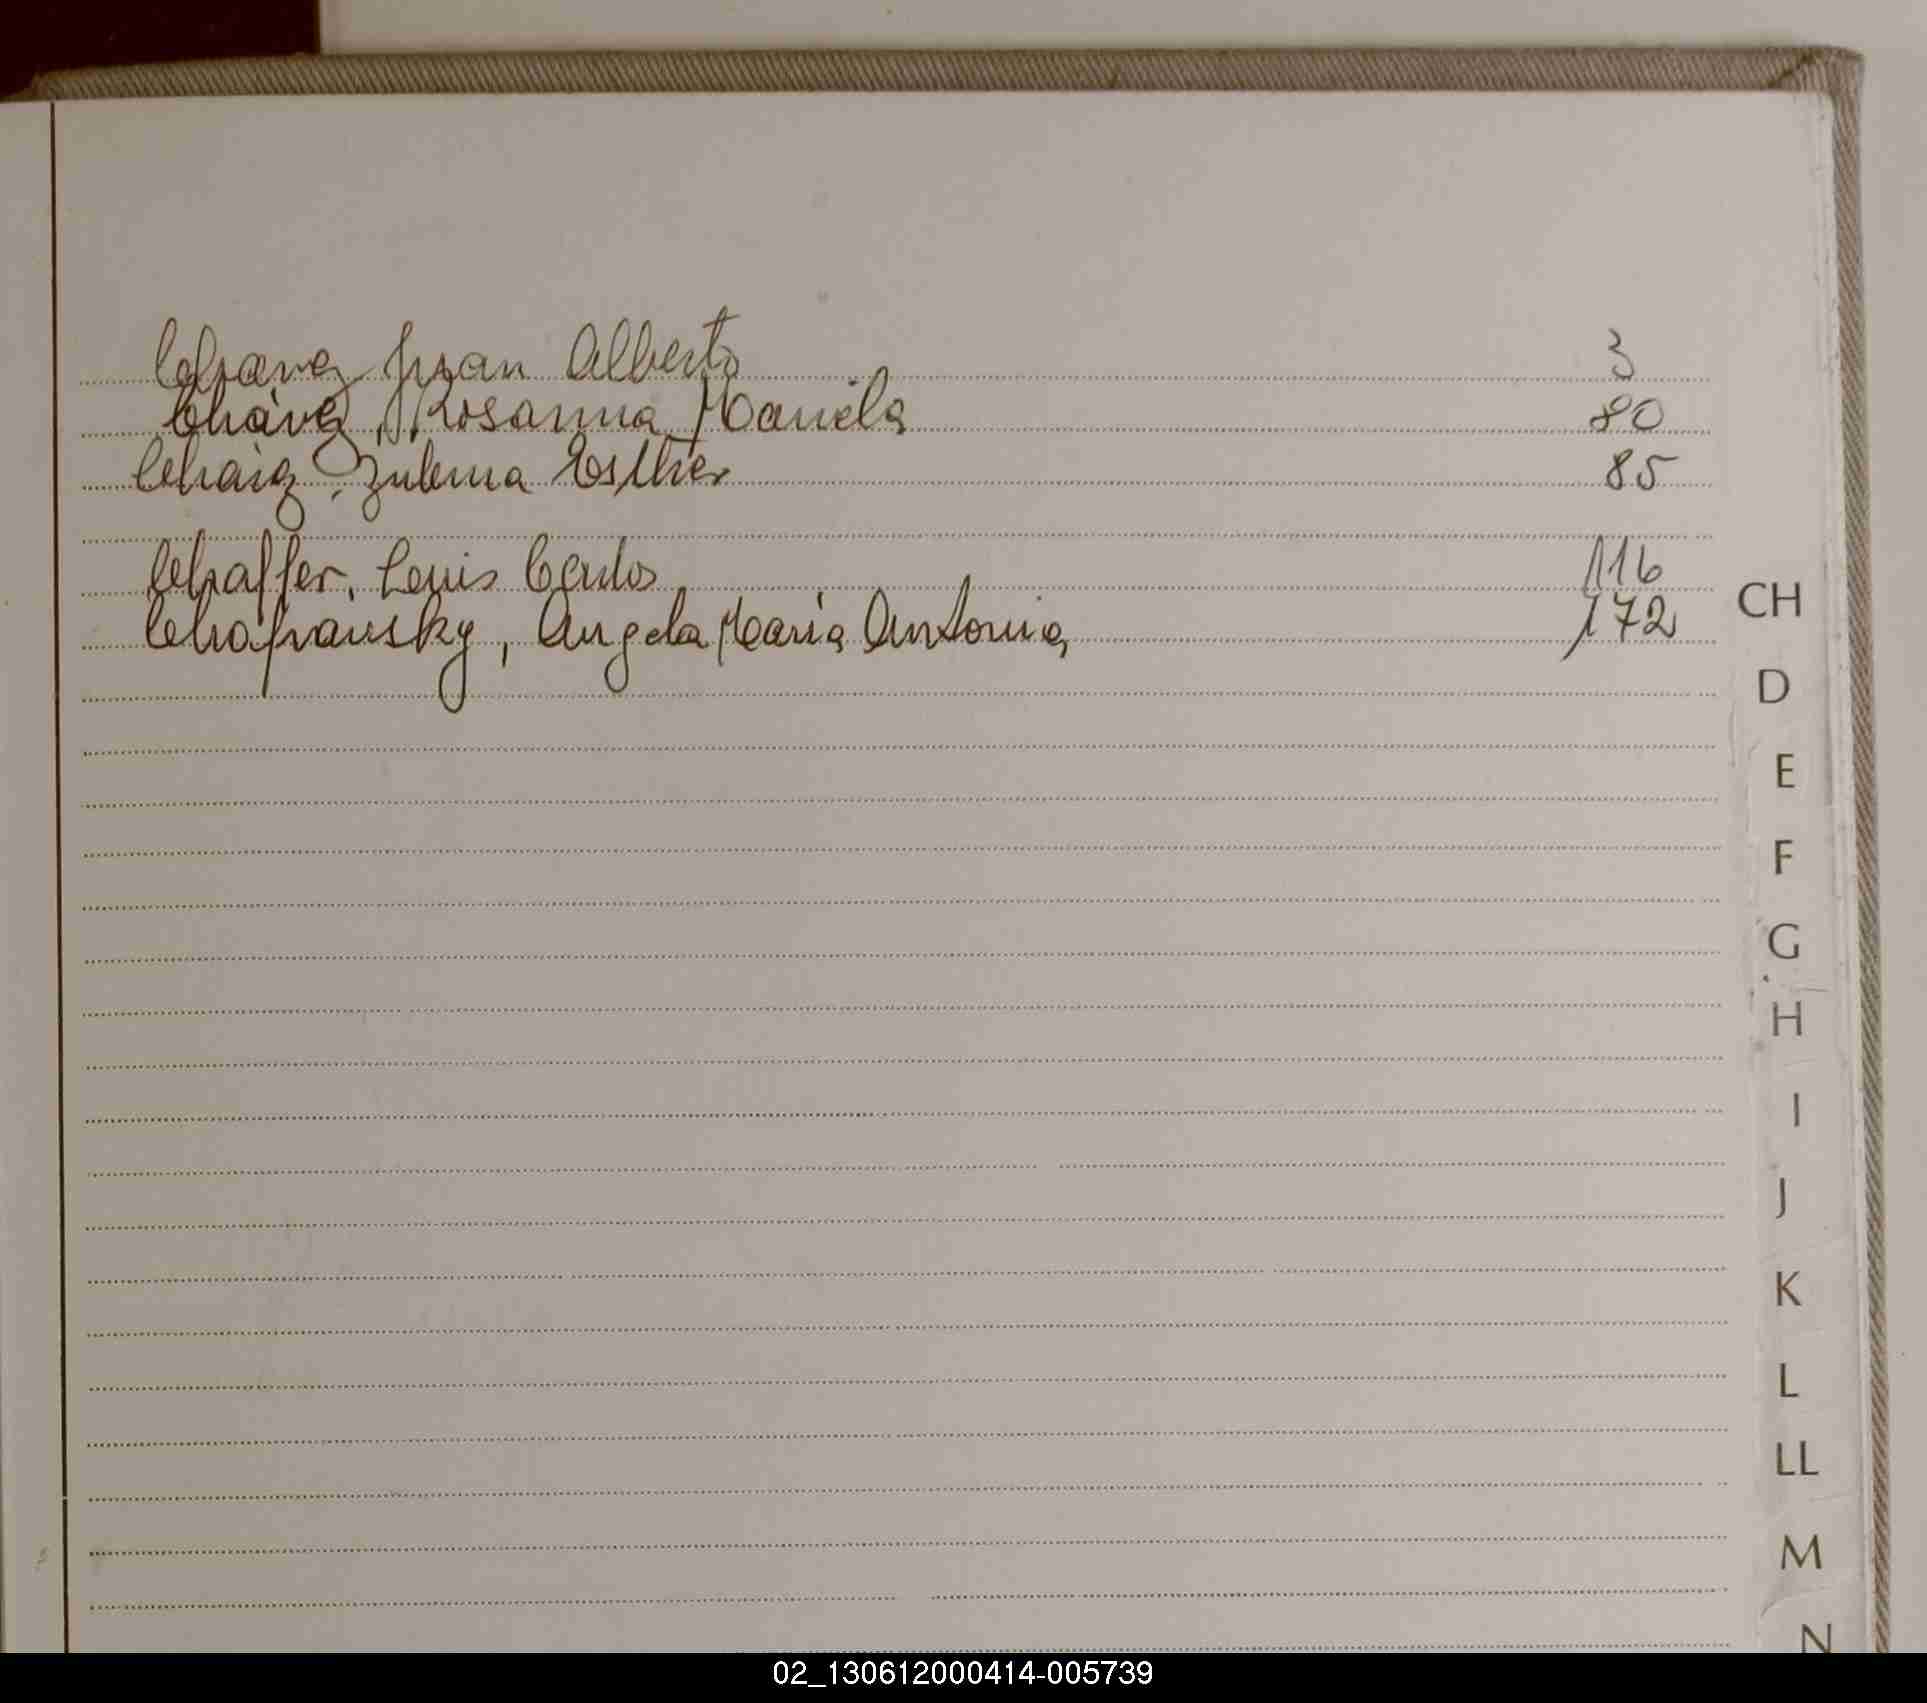 Chavez Juan Alberto 3
Chávez, Rosanna Mariela 80
Chaig, Zulema Esther 85
Chaffer, Luis Carlos 116
, Angela María Antonia 172
CH
D
E
F
G
H
I
J
K
L
LL
M
N
02_130612000414-005739